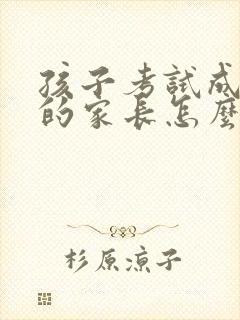 孩子考試成
的家长怎麼
杉原凉子